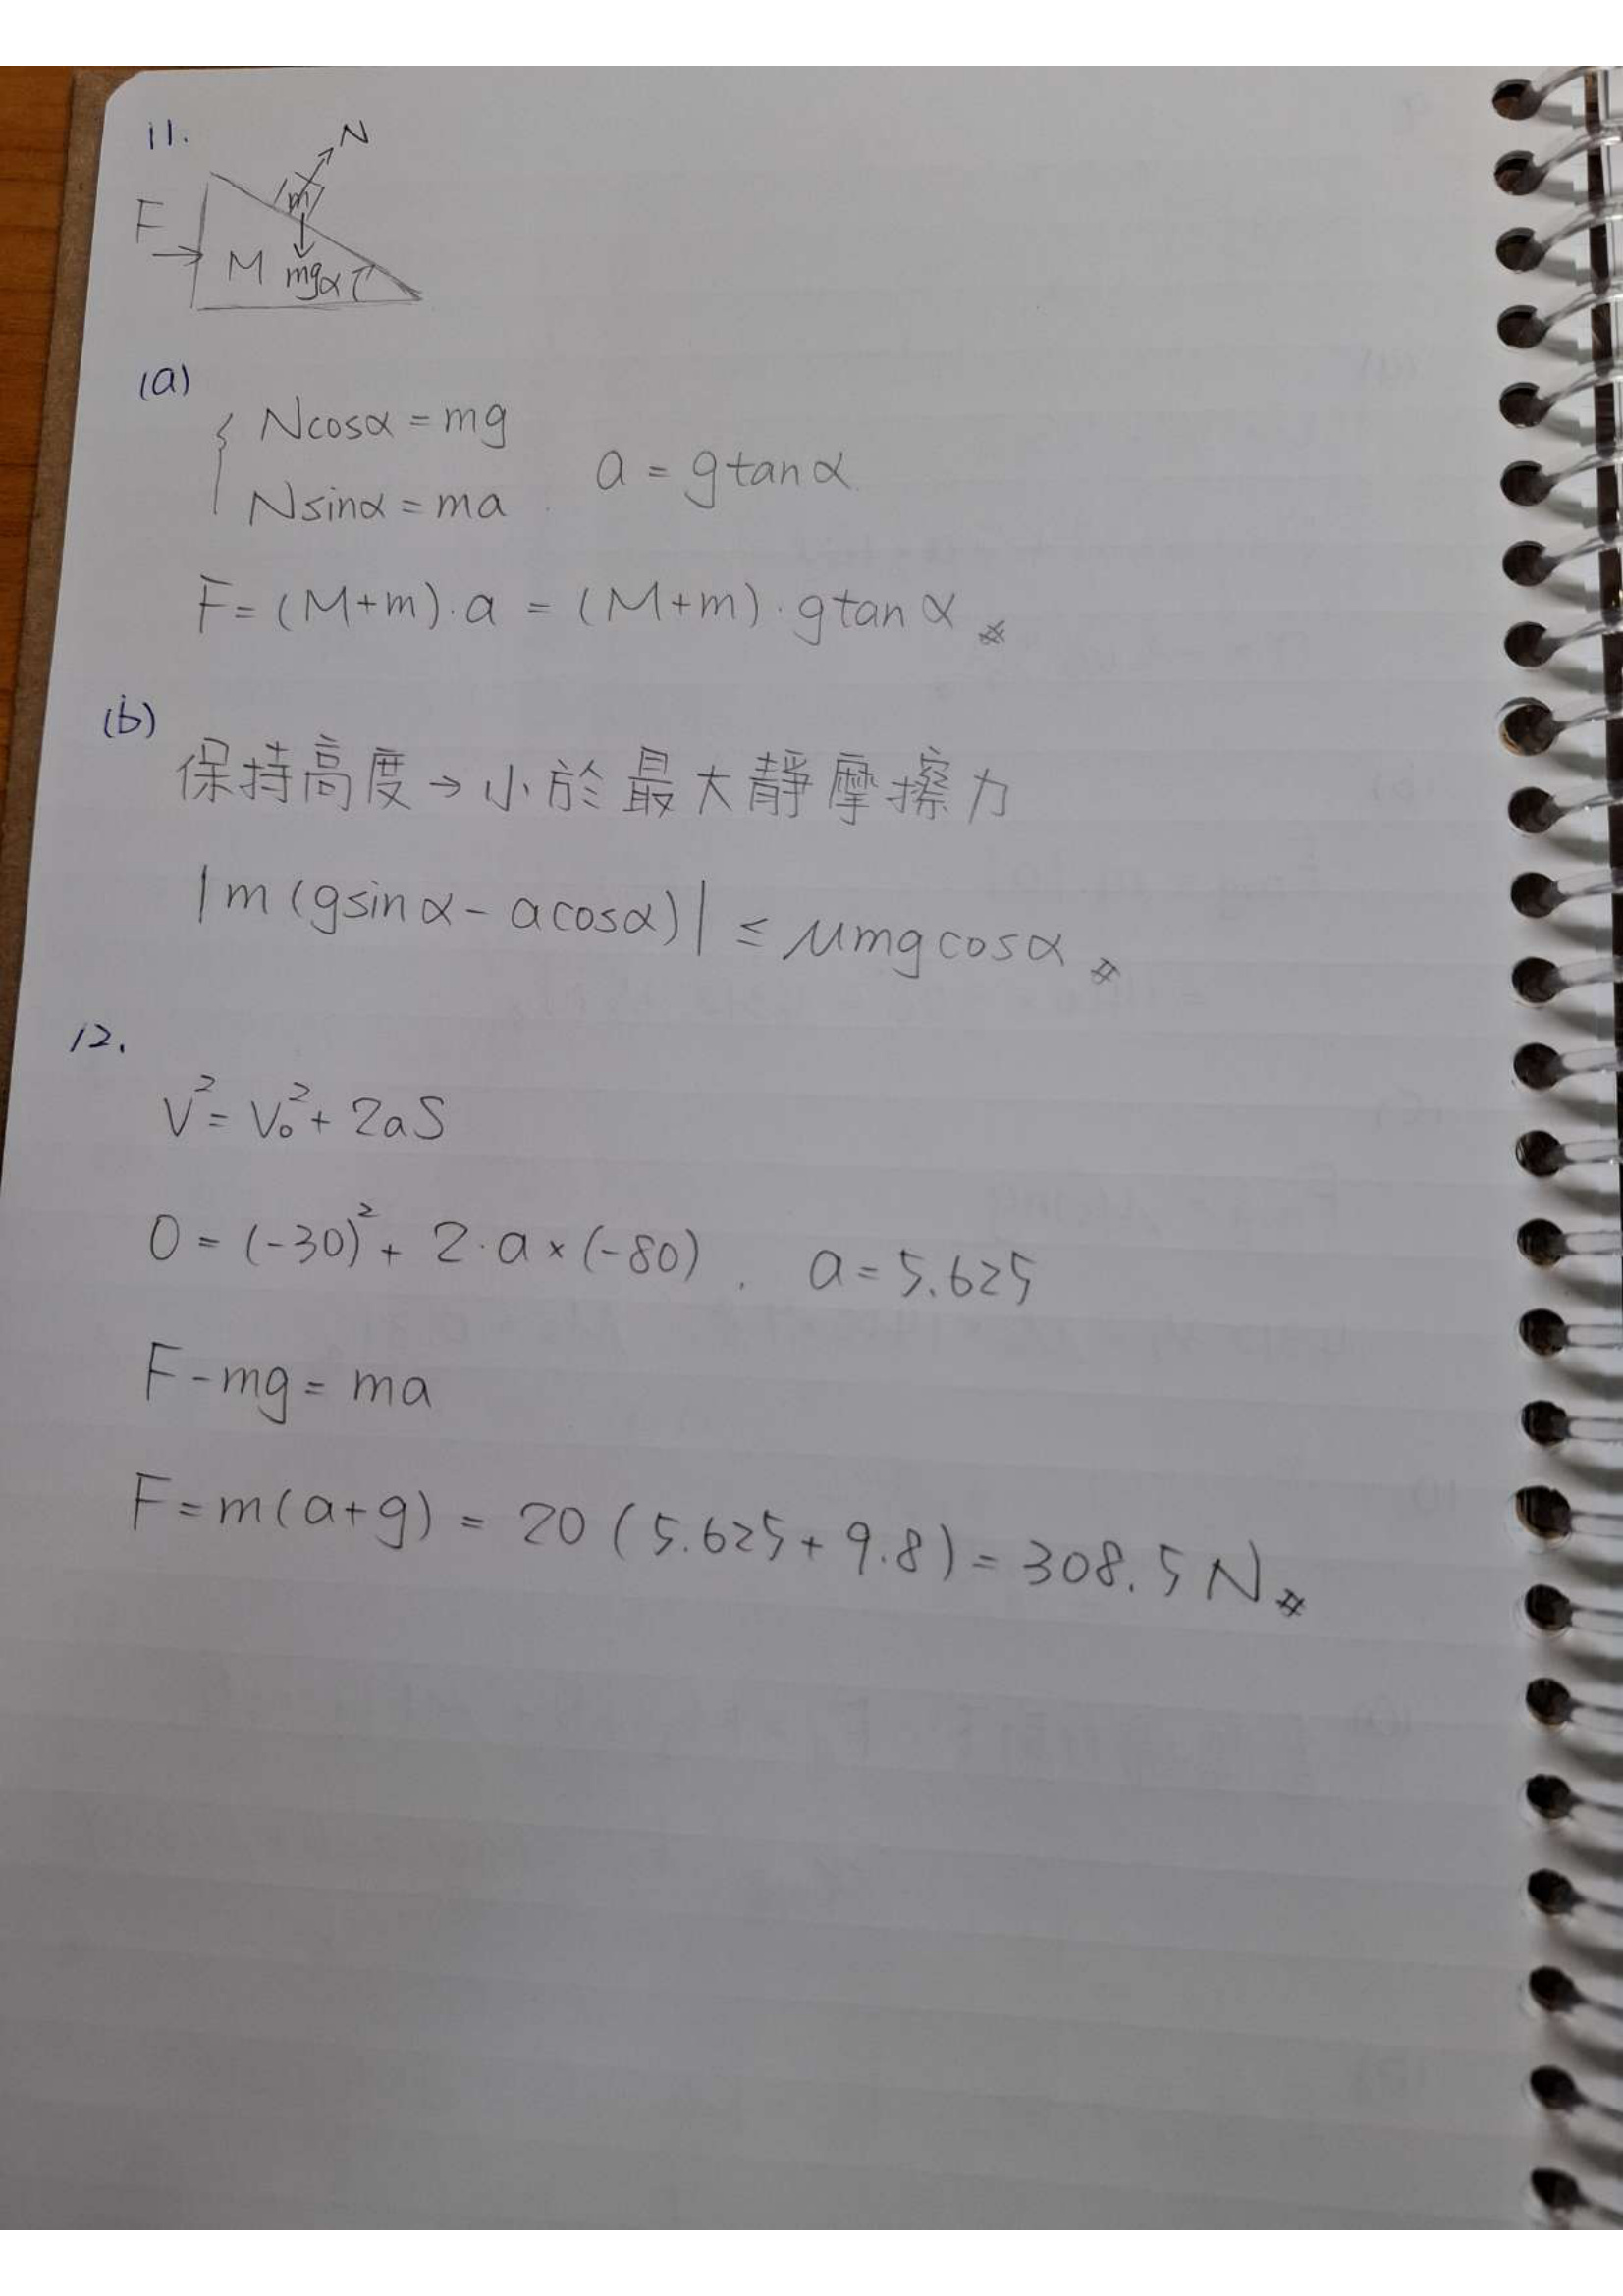 11.
N
m
F
M mg α
(a)
Ncosα = mg
Nsinα = ma
a = g tanα
F = (M+m)·a = (M+m)·g tanα #
(b)
保持高度→小於最大靜摩擦力
|m(gsinα - acosα)| ≤ μmgcosα #
12.
V² = V₀² + 2aS
0 = (-30)² + 2·a×(-80), a = 5.625
F - mg = ma
F = m(a+g) = 20(5.625+9.8) = 308.5N #